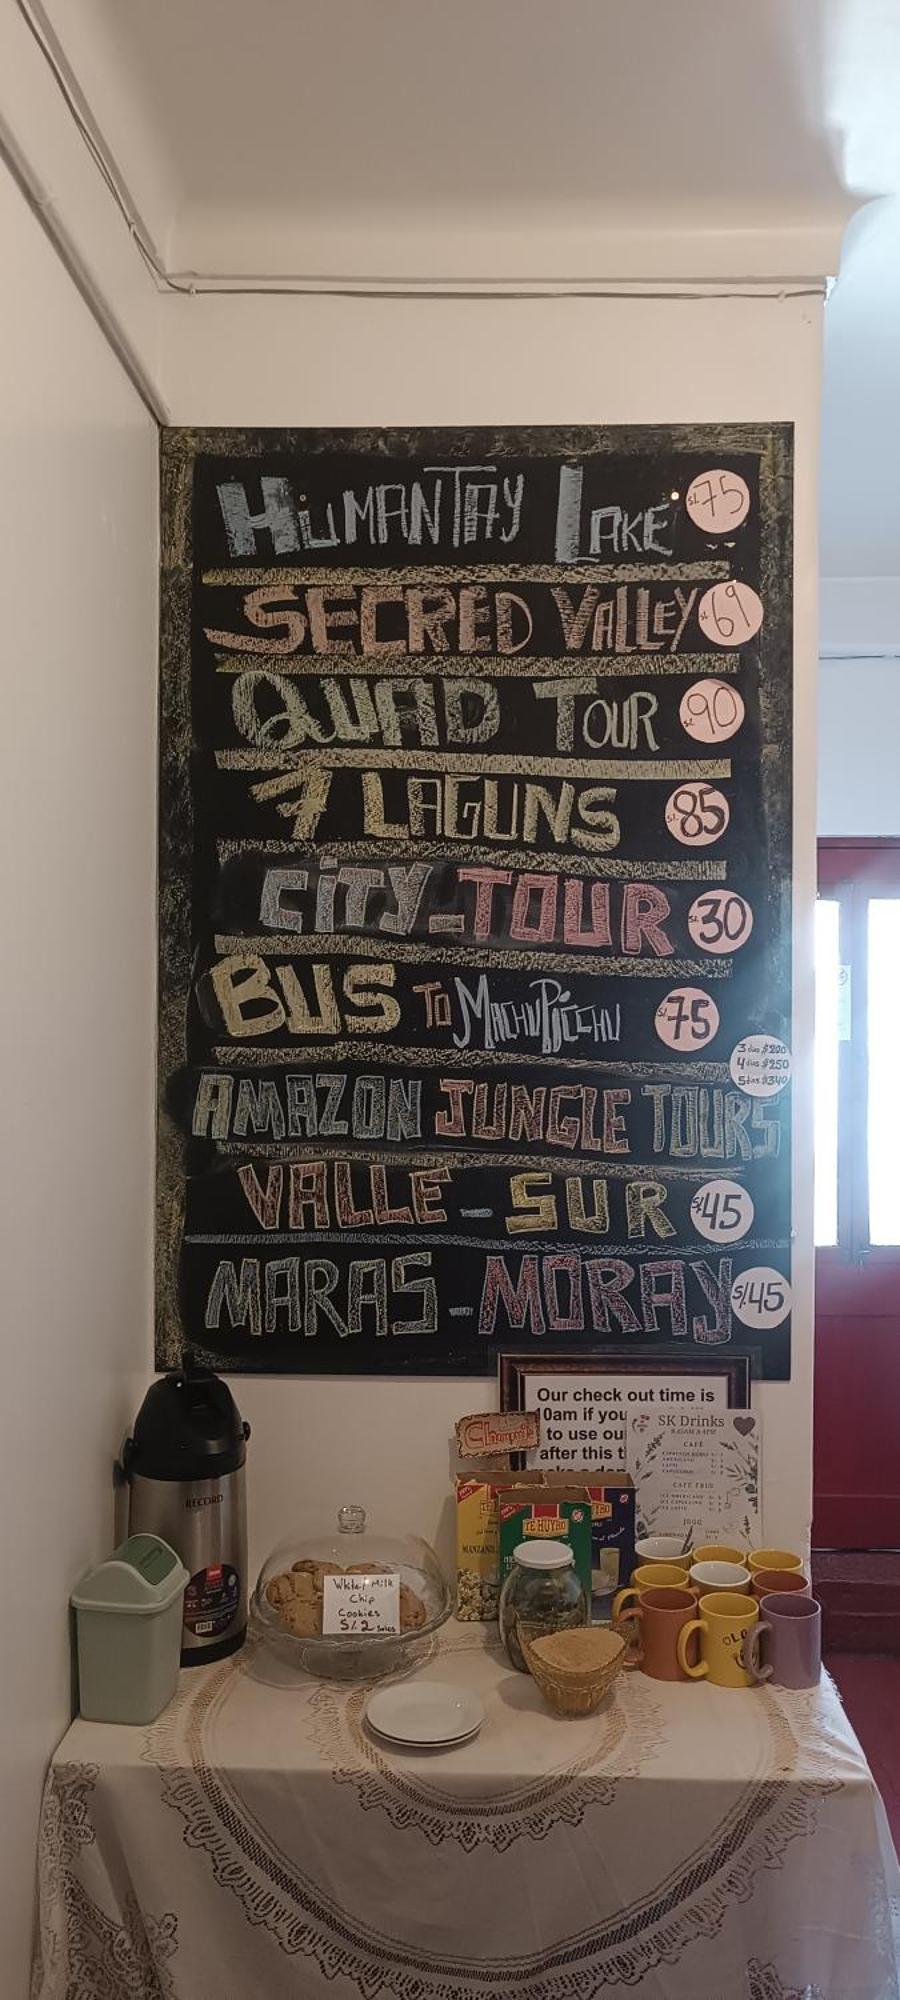 HUMANTAY LAKE S/. 75
SECRED VALLEY S/. 69
QUAD TOUR S/. 90
7 LAGUNS S/. 85
CITY-TOUR S/. 30
BUS TO MACHUPICCHU S/. 75
3 dias $200
4 dias $250
5 dias $340
AMAZON JUNGLE TOURS
VALLE - SUR S/ 45
MARAS - MORAY S/. 45
Our check out time is
10am if you
to use ou
after this t
SK Drinks
CAFÉ
CAFE FRIO
RECORD
White/Milk
Chip
Cookies
S/. 2 soles
TE HUYRO
MANZANI